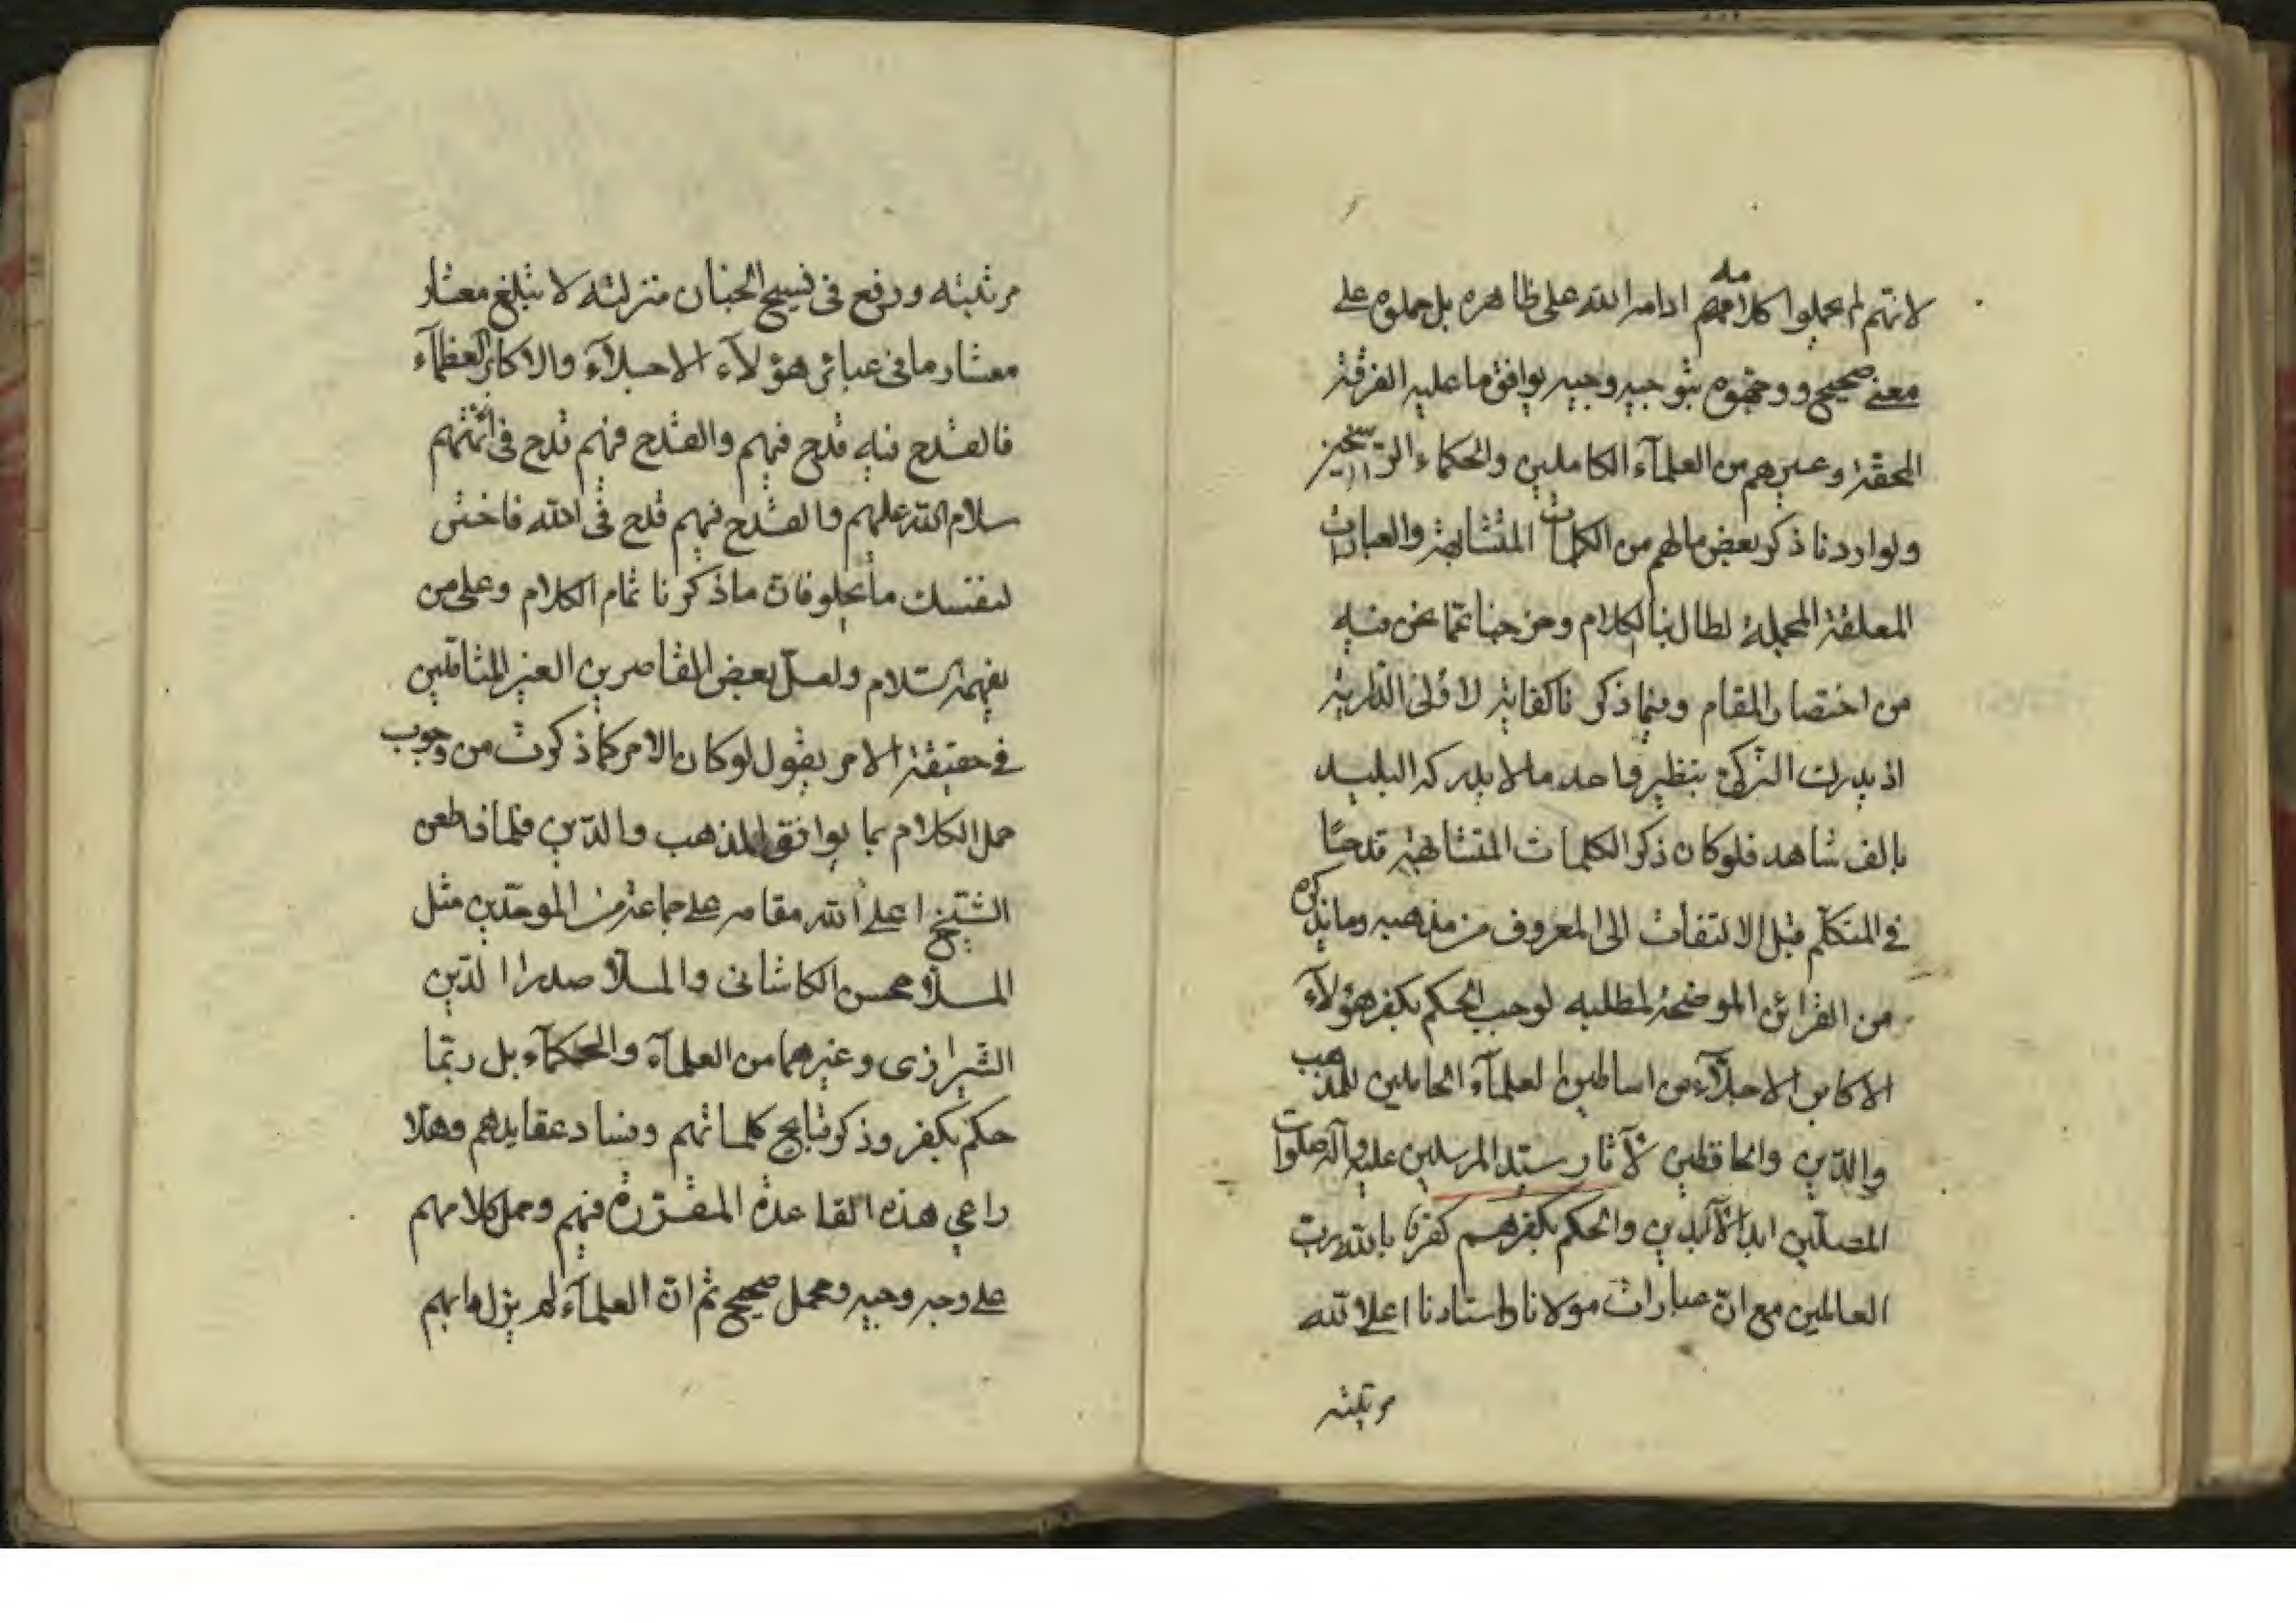 لانهم لم يحملوا كلامهم ادامه الله على ظاهره بل حملوه على
معنى صحيح ووجهوه بتوجيه وجيه يوافق ما عليه الفرقة
المحقة وغيرهم من العلمآء الكاملين والحكماء الراسخين
ولو اردنا ذكر بعض مالهم من الكلمات المتشابهة والعبارات
المعلقة المجملة لطال بنا الكلام وخرجنا عما نحن فيه
من اختصار المقام وفيما ذكرنا كفاية لاولى الدراية
اذ يدرك الزكى بنظير واحد ما لا يدركه البليد
بالف شاهد فلو كان ذكر الكلمات المتشابهة قدحًا
في المتكلم قبل الالتفات الى المعروف من مذهبه وما يذكره
من القرائن الموضحة لمطلبه لوجب الحكم بكفر هؤلآء
الاكابر الاجلآء من اساطين العلمآء الحاملين للمذهب
والدين والحافظين لآثار سيد المرسلين عليه وآله صلوات
المصلين ابد الآبدين والحكم بكفرهم كفرنا بالله رب
العالمين مع ان عبارات مولانا واستادنا اعلى الله
مرتبته
مرتبته ورفع فى فسيح الجنان منزلته لا تبلغ معشار
معشار ما فى عبائر هؤلآء الاجلآء والاكابر العظمآء
فالقدح فيه قدح فيهم والقدح فيهم قدح فى ائمتهم
سلام الله عليهم والقدح فيهم قدح فى الله فاختر
لنفسك ما يحلو فان ما ذكرنا تمام الكلام وعلى من
يفهمه السلام ولعل بعض القاصرين الغير المتاملين
في حقيقة الامر يقول لو كان الامر كما ذكرت من وجوب
حمل الكلام بما يوافق المذهب والدين فلماذا طعن
الشيخ اعلى الله مقامه على جماعة من الموحدين مثل
الملا محسن الكاشانى والملا صدرا الدين
الشيرازى وغيرهما من العلمآء والحكمآء بل ربما
حكم بكفر وذكر قبايح كلماتهم وفساد عقايدهم وهلا
راعي هذه القاعدة المقررة فيهم وحمل كلامهم
على وجه وجيه ومحمل صحيح ثم ان العلمآء لم يزل دابهم